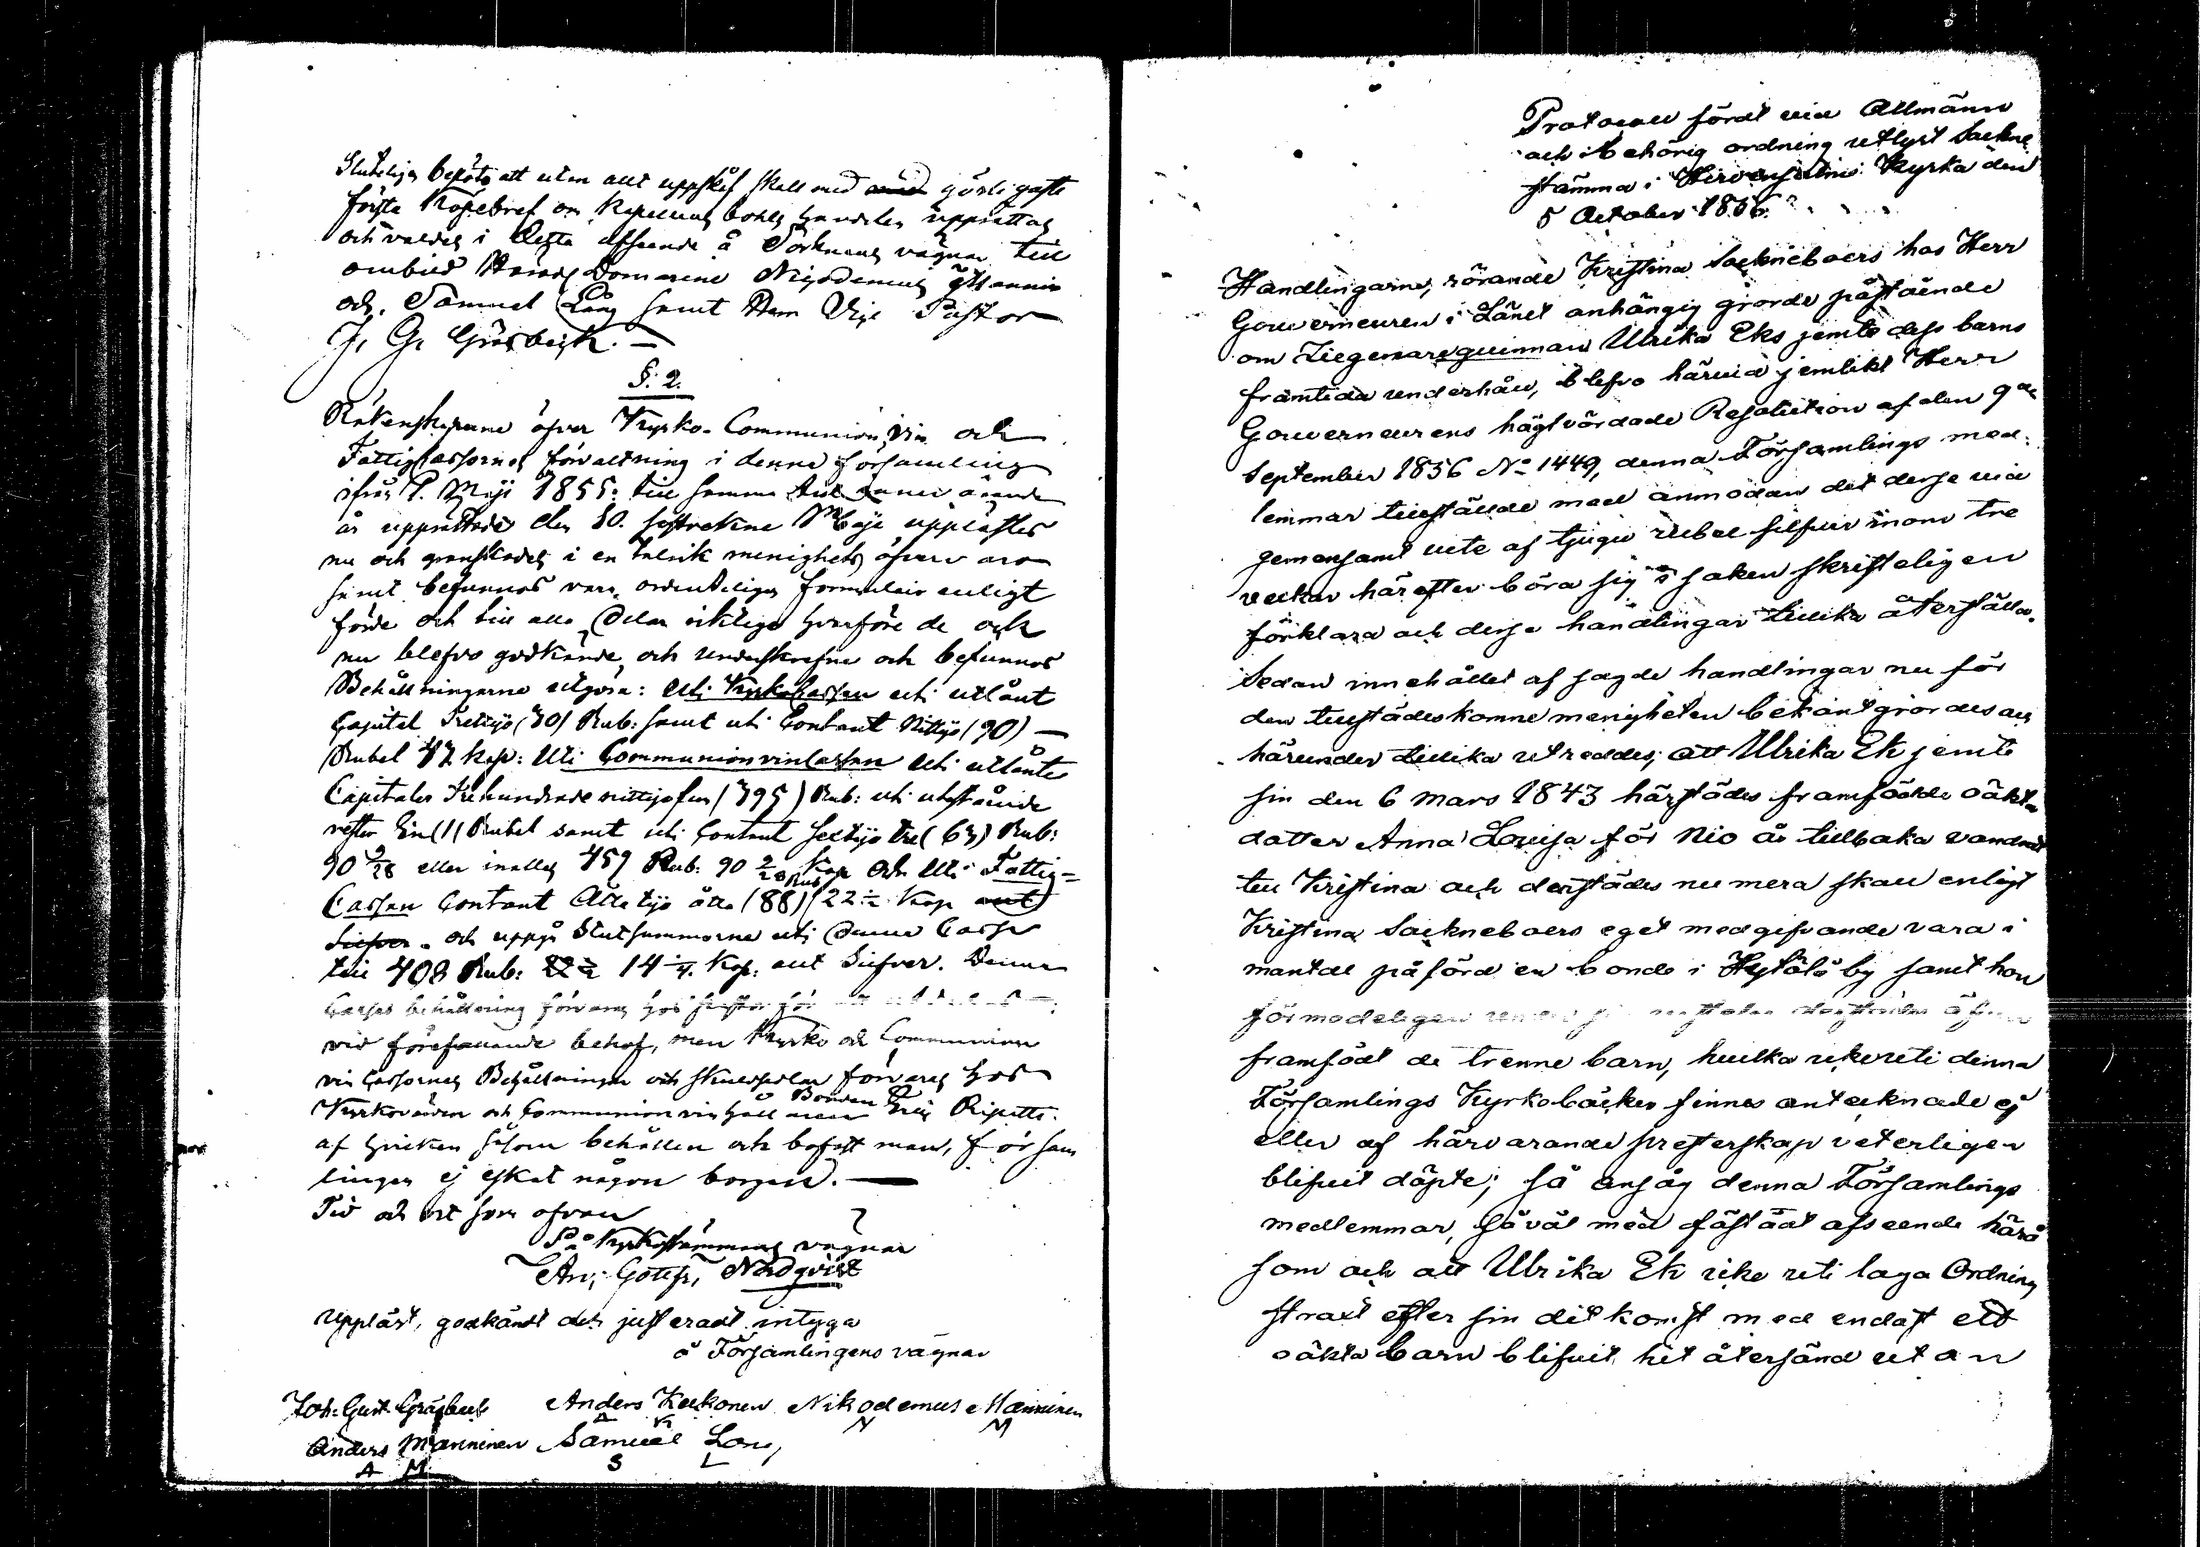 Sluteligen beslöts att utan allt uppskof skall med görligaste
första Köpebref om Kapellans bohls handeln upprättas
och valdes i detta afseende å Socknens vägnar till
ombud Härads Domarene Nigodemus Manninen
och Samuel Lång samt Herr Vice Pastor
J. G. Gråsbeck. —
§. 2.
Räkenskaperne öfver Kyrko- Communion vin och
Fattigcassornas förvaltning i denna församling
ifrån 1. Maji 1855 till samma tid innevarande
år upprättade den 30. sistvekne Maji upplästes
nu och granskades i en talrik menighets öfvervaro
samt befunnos vara ordentligen formulair enligt
förde och till alla delar riktiga hvarföre de och
nu blefvo godkände och underskrefne och befunnos
Behållningarne utgöra: Uti Kyrkocassan uti utlånt
Capital Trettijo (30) Rub: samt uti Contant Nittijo (90) —
Rubel 47 kop: Uti Communionvincassan uti utlånte
Capitaler Trehundrade nittijofem (395) Rub: uti utestående
rester En (1) Rubel samt uti Contant Sextijo tre (63) Rub:
90 2/28 eller inalles 459 Rub: 90 2/28 Kop och Uti Fattig=
Cassan Contant Åttatijo åtta (88) Rub 22 1/2 Kop allt
Silfver. och uppgå Slutsummorne uti denne Cassa
till 408 Rub: 22 1/2 14 1/4 Kop: allt Silfver. Denna
Cassas behållning förvaras hos Pastor för att
vid förefallande behof, men Kyrko och Communion
vin Cassornas Behållningar och skuldsedlar förvaras hos
Kyrkovärden och Communion vin Bonden Eric Ripatti
af hvilken såsom behållen och bofast man, försam
lingen ej äskat någon borgen. —
Tid och ort som ofvan
På Kyrkostämmans vägnar
And: Gottfr: Nordqvist
Uppläst, godkändt och justeradt intyga
å Församlingens vägnar
Joh: Gust: Gråsbeck Anders Kekkonen Nikodemus Manninen
A K N M
Anders Manninen Samuel Lång
A M S L
Protocoll fördt vid Allmänn
och i behörig ordning utlyst Sockne
stämma i Hirvensalmi Kyrka den
5 October 1856.
Handlingarne, rörande Kristina Sockneboers hos Herr
Gouverneuren i Länet anhängig gjorde påstående
om Ziegenareqvinnan Ulrika Eks jemte dess barns
framtida underhåll, blefvo härvid jemlikt Herr
Gouverneurens högtvördade Resolution af den 9de
September 1856 No 1449, denna Församlings med-
lemmar tillstälde med anmodan det desse vid
gemensamt vite af tjugu rubel silfver inom tre
veckor härefter böra sig i saken skrifteligen
förklara och desse handlingar tillika återställa.
Sedan innehållet af sagde handlingar nu för
den tillstädeskomne menigheten bekantgjordes och
härunder tillika utreddes, att Ulrika Ek jemte
sin den 6 Mars 1843 härstädes framfödde oäkta
dotter Anna Lovisa för nio år tillbaka vandrat
till Kristina och derstädes numera skall enligt
Kristina Socknebors eget medgifvande vara i
mantal påförd en bonde i Hyötölä by samt hon
förmodeligen under sin vistelse derstädes äfven
framfödt de trenne barn, hvilka icke uti denna
Församlings Kyrkoböcker finnes antecknade ej
eller af härvarande presterskap veterligen
blifvit döpte; så ansåg denna Församlings
medlemmar, såväl med fästadt afseende härå
som och att Ulrika Ek icke uti laga Ordning
straxt efter sin ditkomst med endast ett
oäkta barn blifvit hit återsänd utan